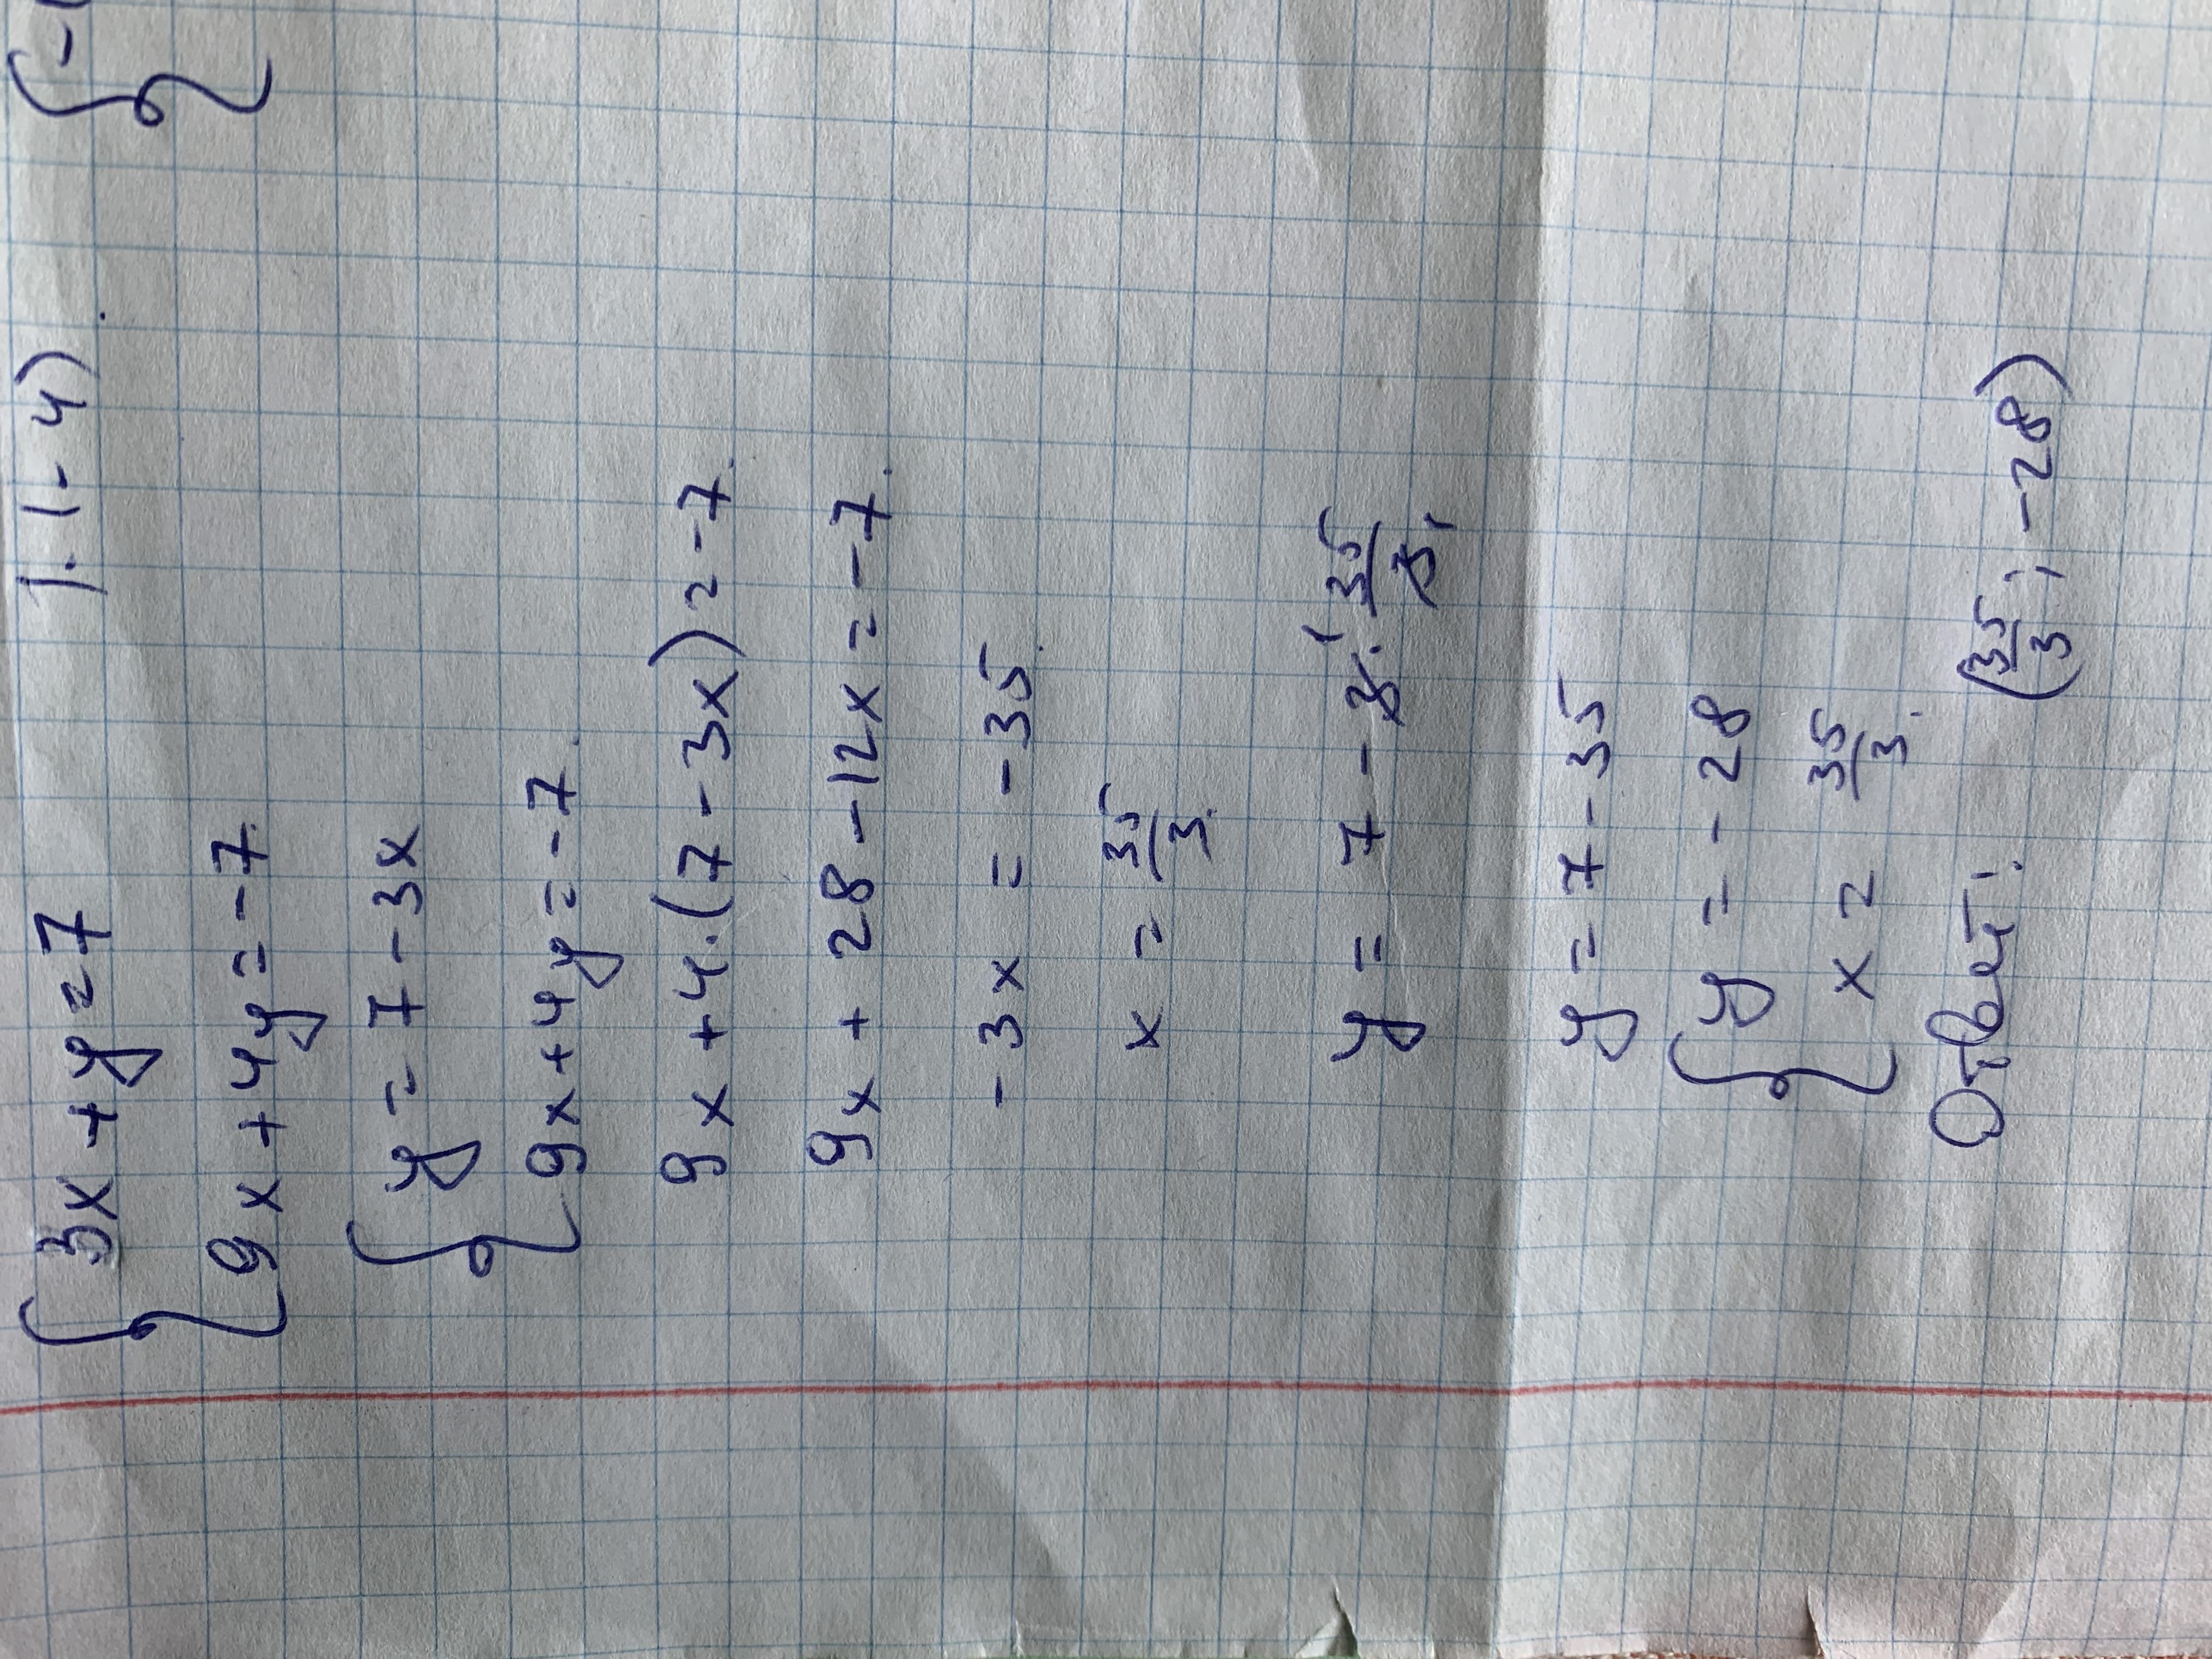 { 3x + y = 7 | · (-4) { -
9x + 4y = -7
{ y = 7 - 3x
9x + 4y = -7.
9x + 4·(7 - 3x) = -7.
9x + 28 - 12x = -7.
-3x = -35.
x = 35/3.
y = 7 - 3 · 35/3
y = 7 - 35
{ y = -28
x = 35/3.
Ответ: (35/3; -28)